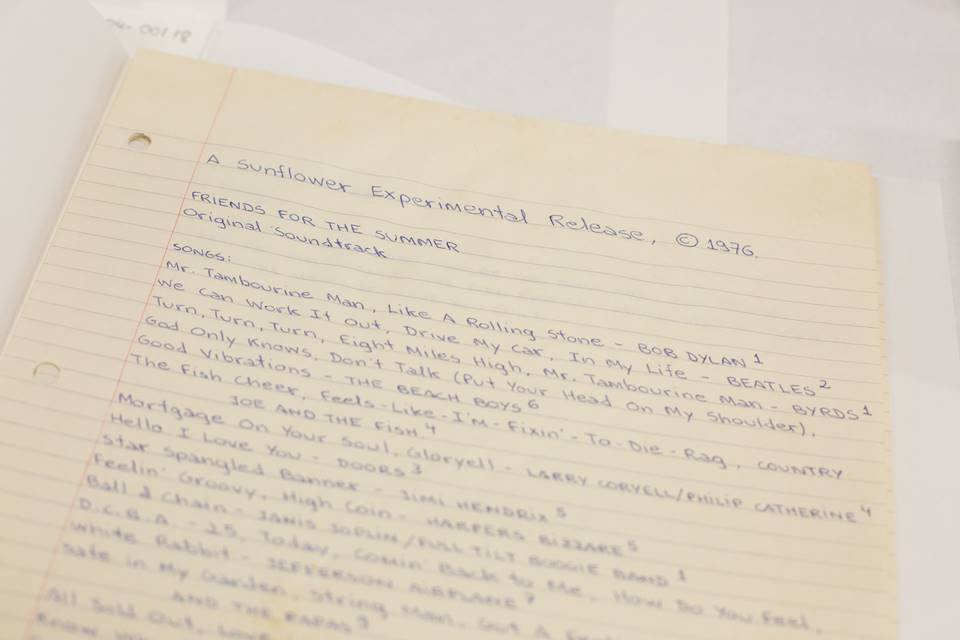 001.18
A Sunflower Experimental Release, © 1976.
FRIENDS FOR THE SUMMER
Original Soundtrack
SONGS:
Mr. Tambourine Man, Like A Rolling Stone - BOB DYLAN 1
We Can Work It Out, Drive My Car, In My Life - BEATLES 2
Turn, Turn, Turn, Eight Miles High, Mr. Tambourine Man - BYRDS 1
God Only Knows, Don't Talk (Put Your Head On My Shoulder),
Good Vibrations - THE BEACH BOYS 6
The Fish Cheer, Feels-Like-I'm-Fixin'-To-Die-Rag, COUNTRY
JOE AND THE FISH. 4
Mortgage On Your Soul, Gloryell - LARRY CORYELL/PHILIP CATHERINE 4
Hello I Love You - DOORS 3
Star Spangled Banner - JIMI HENDRIX 5
Feelin' Groovy, High Coin - HARPERS BIZZARE 5
Ball & Chain - JANIS JOPLIN/FULL TILT BOOGIE BAND 1
D.C.B.A. - 25, Today, Comin' Back to Me, How Do You Feel,
White Rabbit - JEFFERSON AIRPLANE 7
Safe in My Garden, String Man, Got A
AND THE PAPAS 9
All Sold Out,
Know